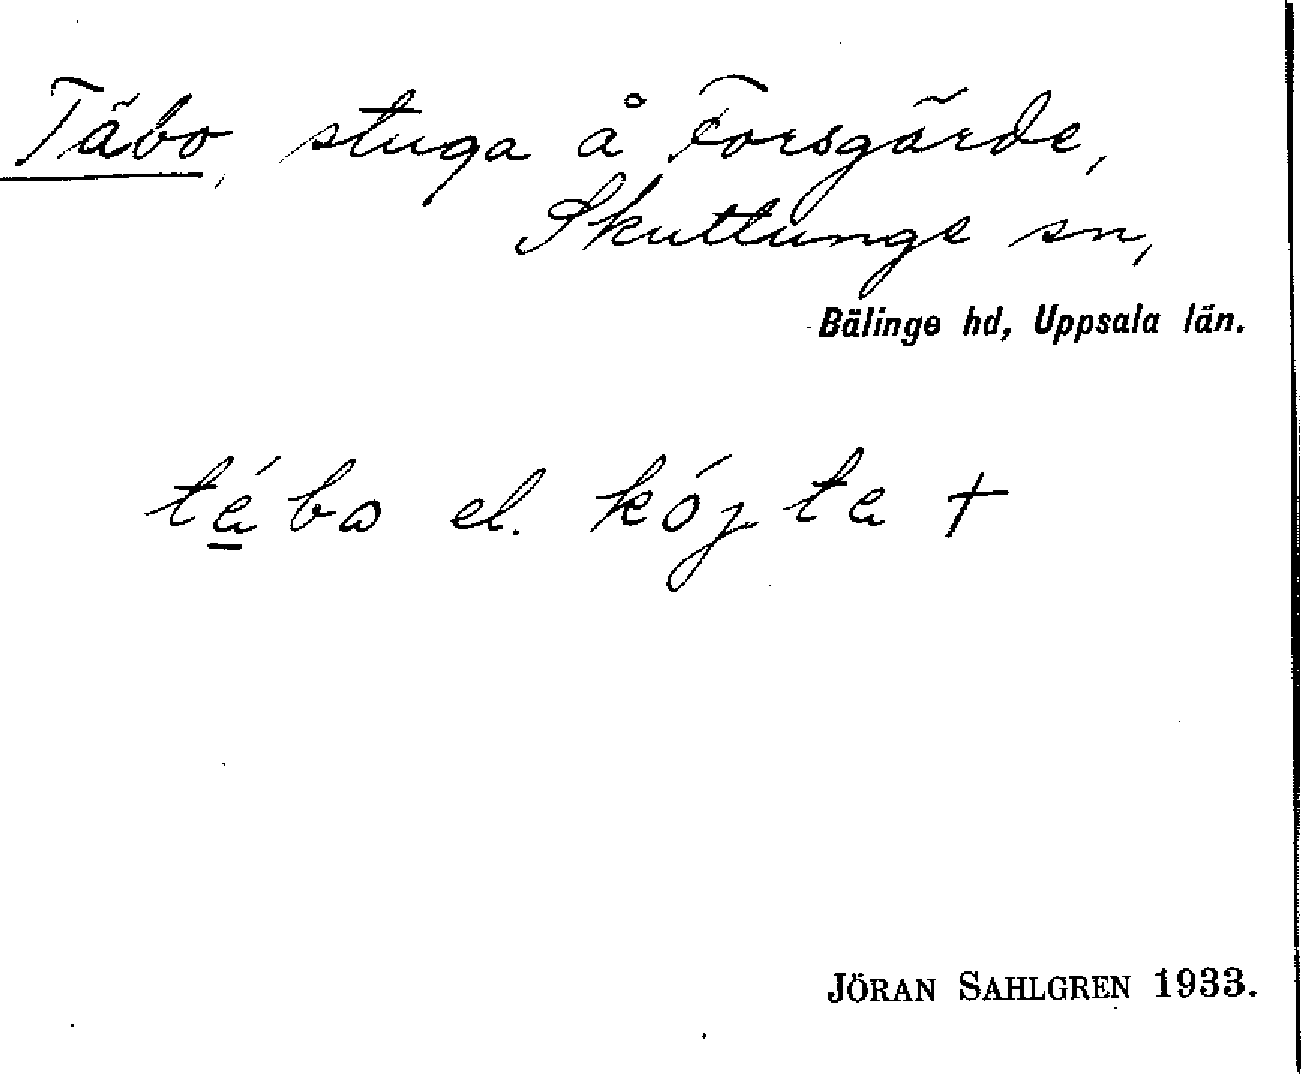 Täbo, stuga å Forsgärde,
Skuttunge sn,
Bälinge hd, Uppsala län.
tä́bo el. kójta †
JÖRAN SAHLGREN 1933.